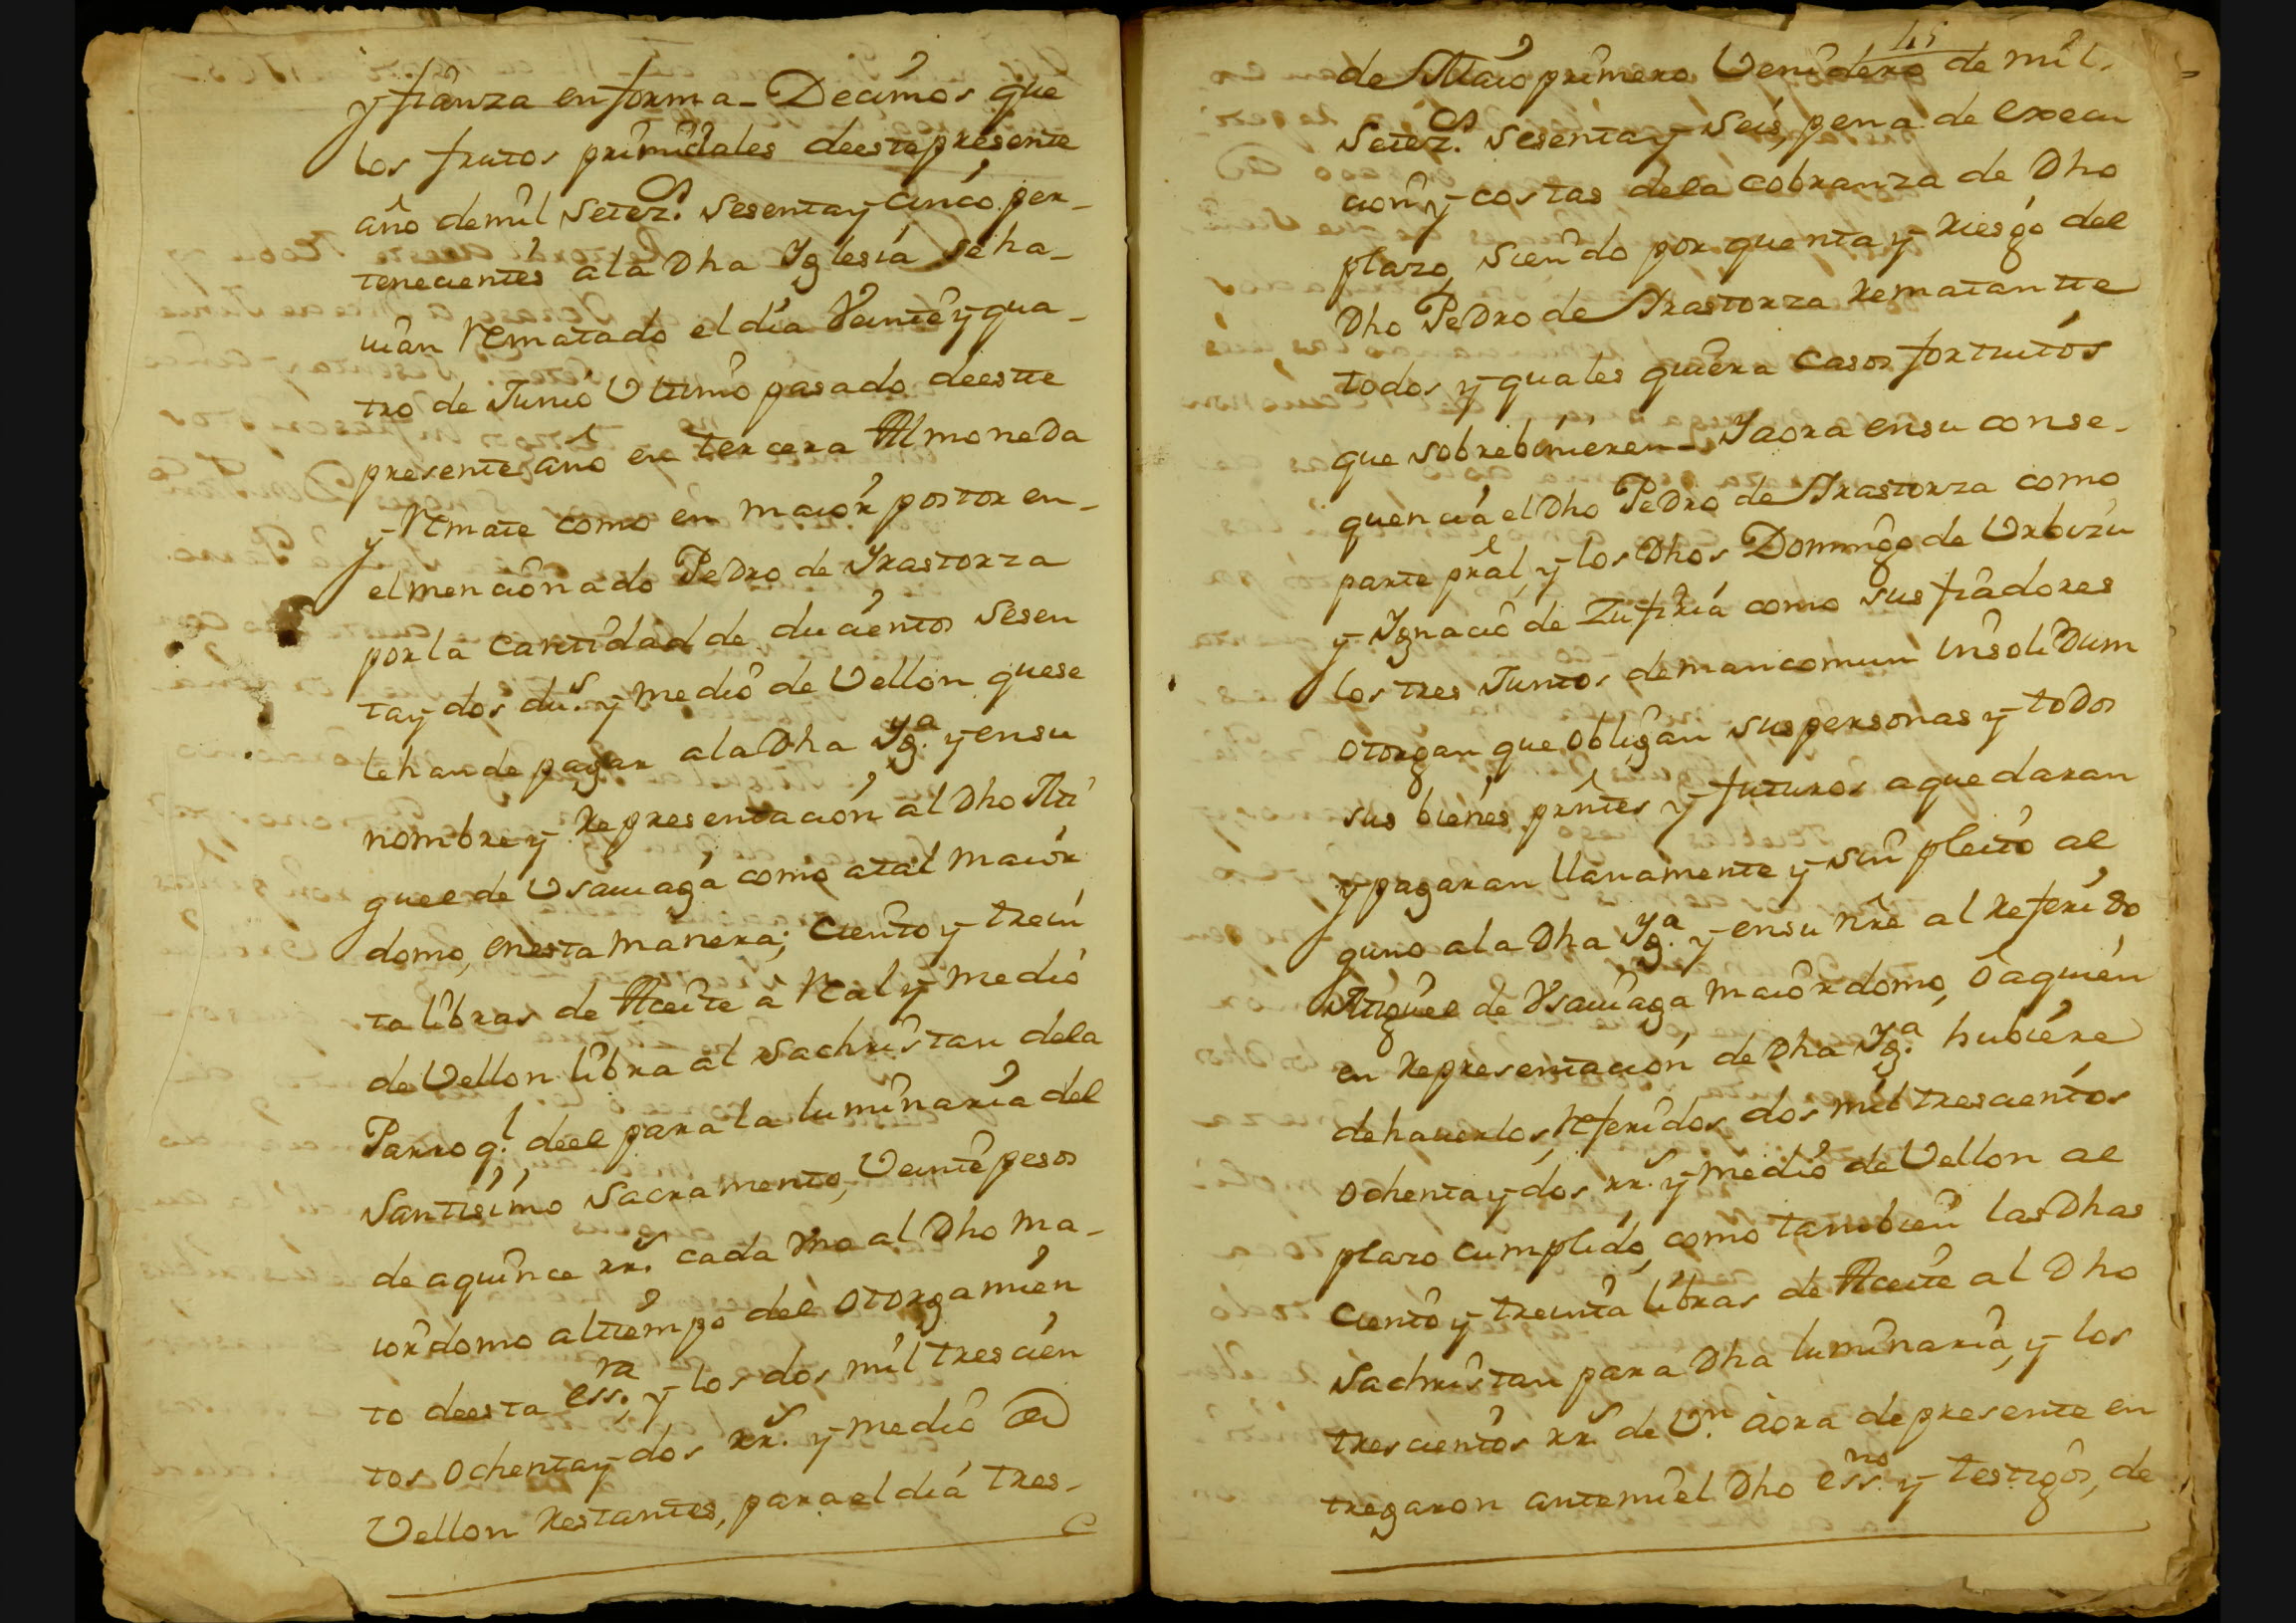 y fianza en forma_ Decimos que
los frutos primiciales deeste presente
año demil Setez.os Sesenta y Cinco per_
tenecientes ala Dha Yglesia Se ha_
uian Rematado el dia Veinte y qua_
tro de Junio Ultimo pasado deestte
presente año en tercera Almoneda
y Remate como en maior postor en_
el mencionado Pedro de Yrastorza
por la Cantidad de ducientos Sesen
ta y dos du.s y medio de Vellon que se
le han de pagar ala Dha Yg.a y en su
nombre y Representacion al Dho Mi
guel de Usauiaga como atal maior
domo, en esta manera; Ciento y trein
ta libras de Aceite a Real y medio
de Vellon libra al Sachristan dela
Parroq.l deel para la luminaria del
Santisimo Sacramento, Veinte pesos
de a quince rr.s cada Vno al Dho ma_
iordomo al tiempo del otorgamien
to deesta ess.ra y los dos mil trescien
tos ochenta y dos rr.s y medio de
Vellon Restantes, para el dia tres_
45
de Maio primero Venidero de mil
Setez.os Sesenta y Seis, pena de execu
cion y costas dela cobranza de Dho
plazo, Siendo por quenta y Riesgo del
Dho Pedro de Yrastorza Rematantte
todos y quales quiera casos fortuitos
que sobrebinieren_ Y aora en su conse_
quencia el Dho Pedro de Yrastorza como
parte pral, y los Dhos Domingo de Urbizu
y Ygnacio de Zufiria como sus fiadores
los tres Juntos de mancomun insolidum
otorgan que obligan sus personas y todos
sus bienes prntes y futuros a que daran
y pagaran llanamente y sin pleito al
guno ala Dha Yg.a y en su nre al Referido
Miguel de Vsauiaga maiordomo, o a quien
en Representacion de Dha Yg.a hubiere
de hauer los Referidos dos mil trescientos
ochenta y dos rr.s y medio de Vellon al
plazo cumplido, como tambien las Dhas
Ciento y treinta libras de Aceite al Dho
Sachristan para Dha luminaria, y los
trescientos rr.s de V.n aora de presente en
tregaron ante mi el Dho ess.no y testigos, de